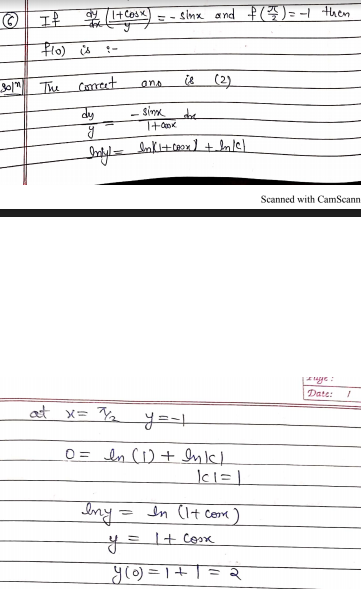 (6) If dy/dx ((1+cosx)/y) = - sinx and f(π/2) = -1 then
f(0) is :-
Solⁿ The correct ans is (2)
dy/y = -sinx/(1+cosx) dx
ln|y| = ln|(1+cosx)| + ln|c|
Scanned with CamScann
Page :
Date: /
at x= π/2 y=-1
0 = ln (1) + ln|c|
|c| = 1
lny = ln (1+ cosx)
y = 1+ cosx
y(0) = 1+1 = 2